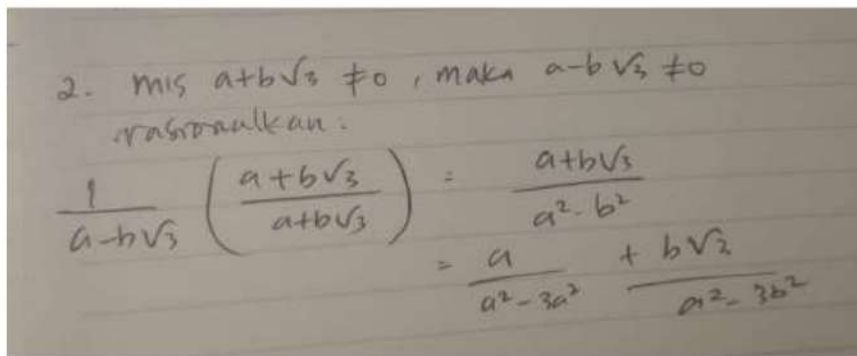 2. mis a+b√3 ≠0 , maka a-b√3 ≠0
rasionalkan.
1/(a-b√3) ((a+b√3)/(a+b√3)) = (a+b√3)/(a²-b²)
= a/(a²-3a²) + b√3/(a²-3b²)